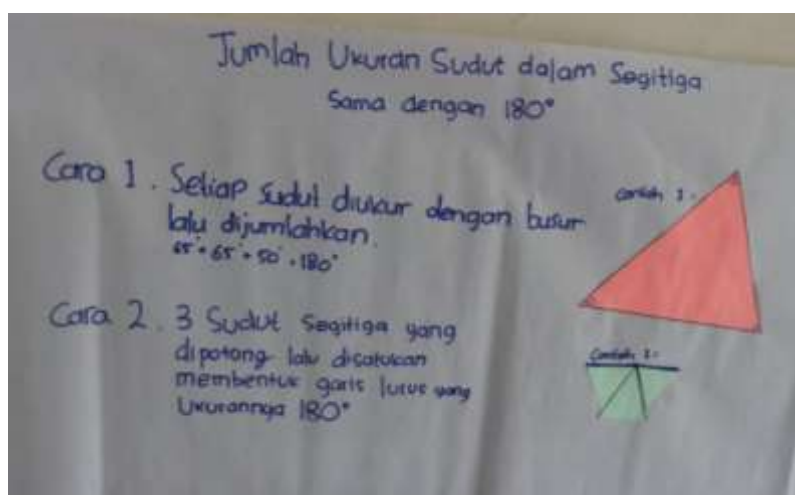 Jumlah Ukuran Sudut dalam Segitiga
Sama dengan 180°
Cara 1. Setiap sudut diukur dengan busur
lalu dijumlahkan.
65° + 65° + 50° = 180°
Contoh 1.
Cara 2. 3 Sudut Segitiga yang
dipotong lalu disatukan
membentuk garis lurus yang
Ukurannya 180°
Contoh